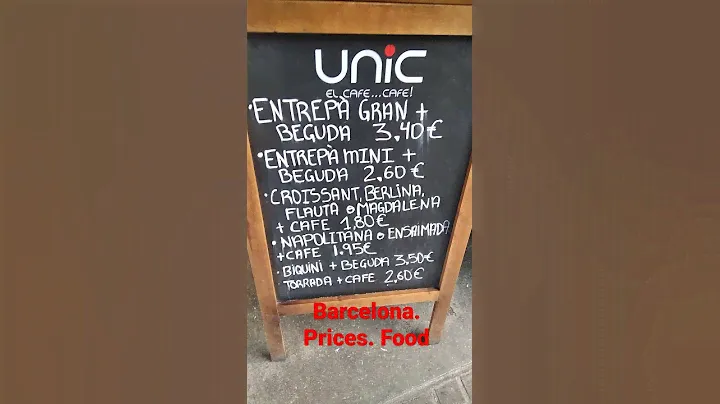 UNIC
EL CAFE...CAFE!
• ENTREPÀ GRAN +
BEGUDA 3,40€
• ENTREPÀ MINI +
BEGUDA 2,60€
• CROISSANT, BERLINA,
FLAUTA O MAGDALENA
+ CAFE 1,80€
• NAPOLITANA O ENSAIMADA
+ CAFE 1.95€
• BIQUINI + BEGUDA 3,50€
TORRADA + CAFE 2,60€
Barcelona.
Prices. Food